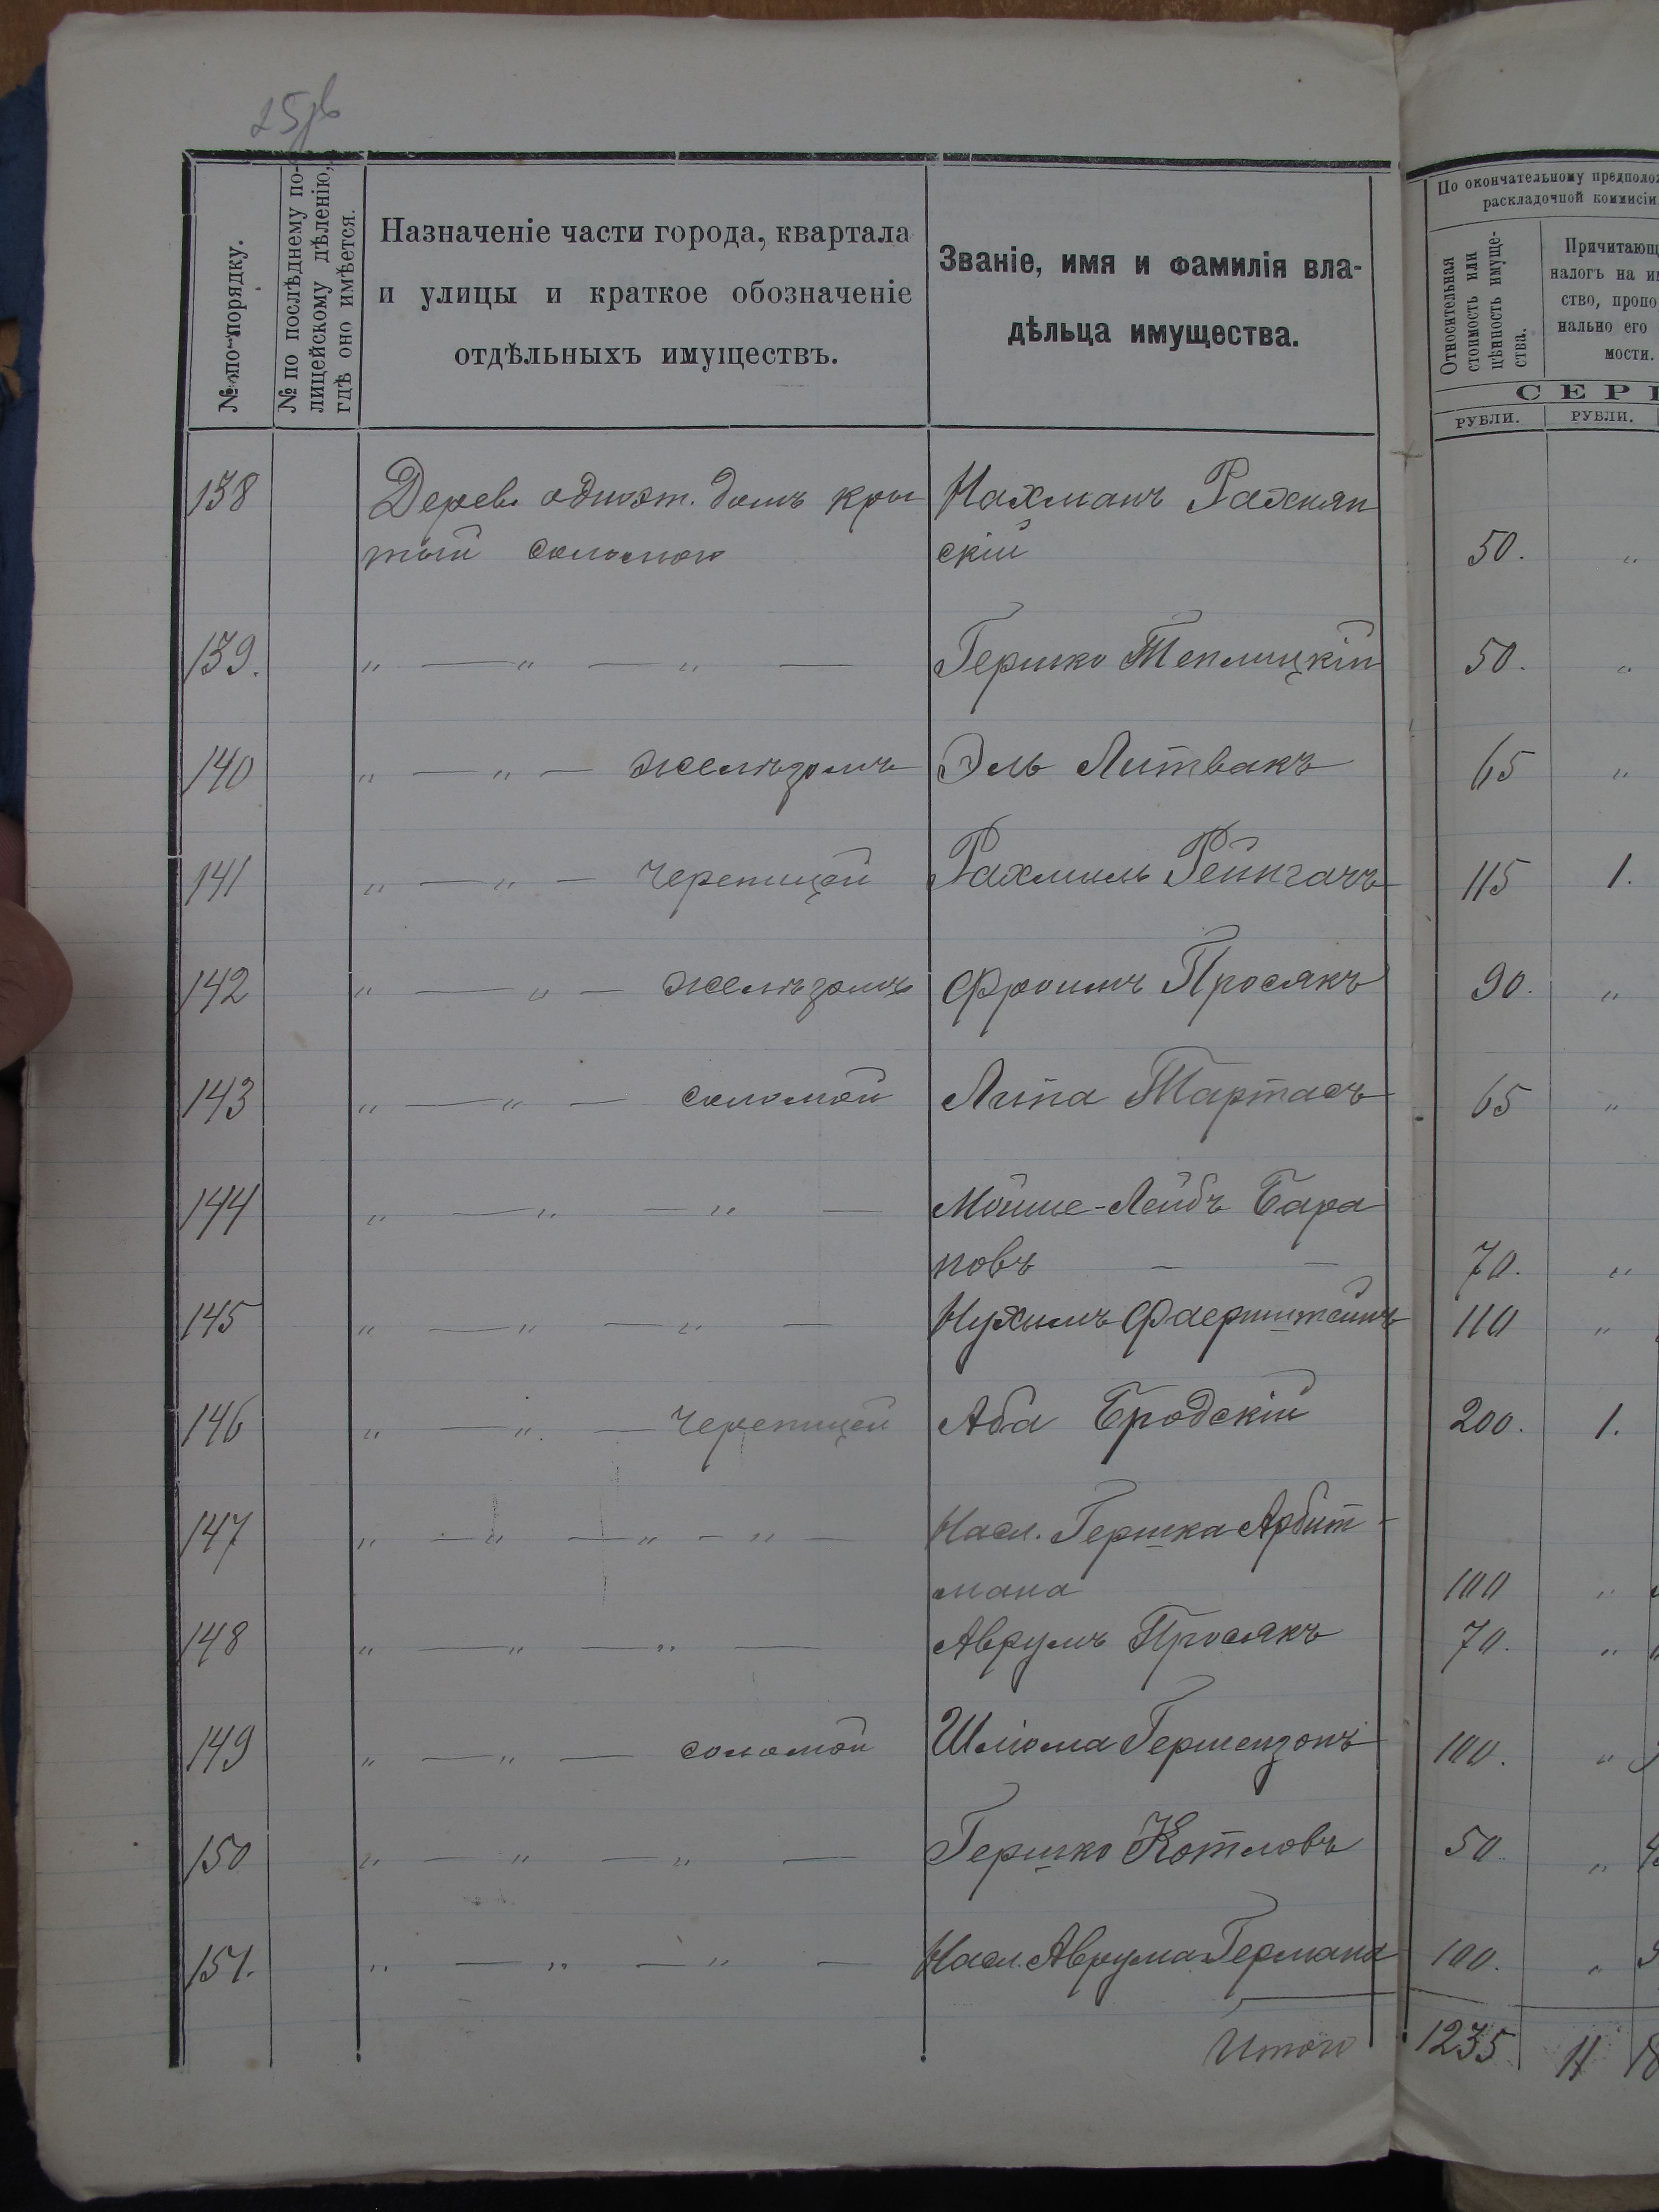 25 об
№ по порядку.
№ по послѣднему по-
лицейскому дѣленію,
гдѣ оно имѣется.
Назначеніе части города, квартала
и улицы и краткое обозначеніе
отдѣльныхъ имуществъ.
Званіе, имя и фамилія вла-
дѣльца имущества.
По окончательному предполож
раскладочной коммисіи
Относительная
стоимость или
цѣнность имуще-
ства.
Причитающ
налогъ на им
ство, пропо
нально его
мости.
СЕРЕ
РУБЛИ. РУБЛИ.
138 Дерев. одноэт. домъ кры Нахманъ Рахнян
тый соломою скій 50. „
139. „ — „ — „ — Гершко Теплицкій 50. „
140 „ — „ — желѣзомъ Эль Литвакъ 65 „
141 „ — „ — черепицей Рахмиль 115 1.
142 „ — „ — желѣзомъ Фроимъ Просякъ 90. „
143 „ — „ — соломой Липа Тартасъ 65 „
144 „ — „ — „ — Мойше-Лейбъ Бара
новъ — — 70. „
145 „ — „ — „ — Нухимъ Фаерштейнъ 110 „
146 „ — „ — черепицей Аба Бродскій 200. 1.
147 „ — „ — „ — „ — Насл. Гершка Арбит-
мана 100 „
148 „ — „ — „ — Аврумъ Просякъ 70. „
149 „ — „ — соломой Шліома Гершензонъ 100. „
150 „ — „ — „ — Гершко Котловъ 50. „
151. „ — „ — „ — Насл. Аврума Германа 100. „
Итого 1235 11 18